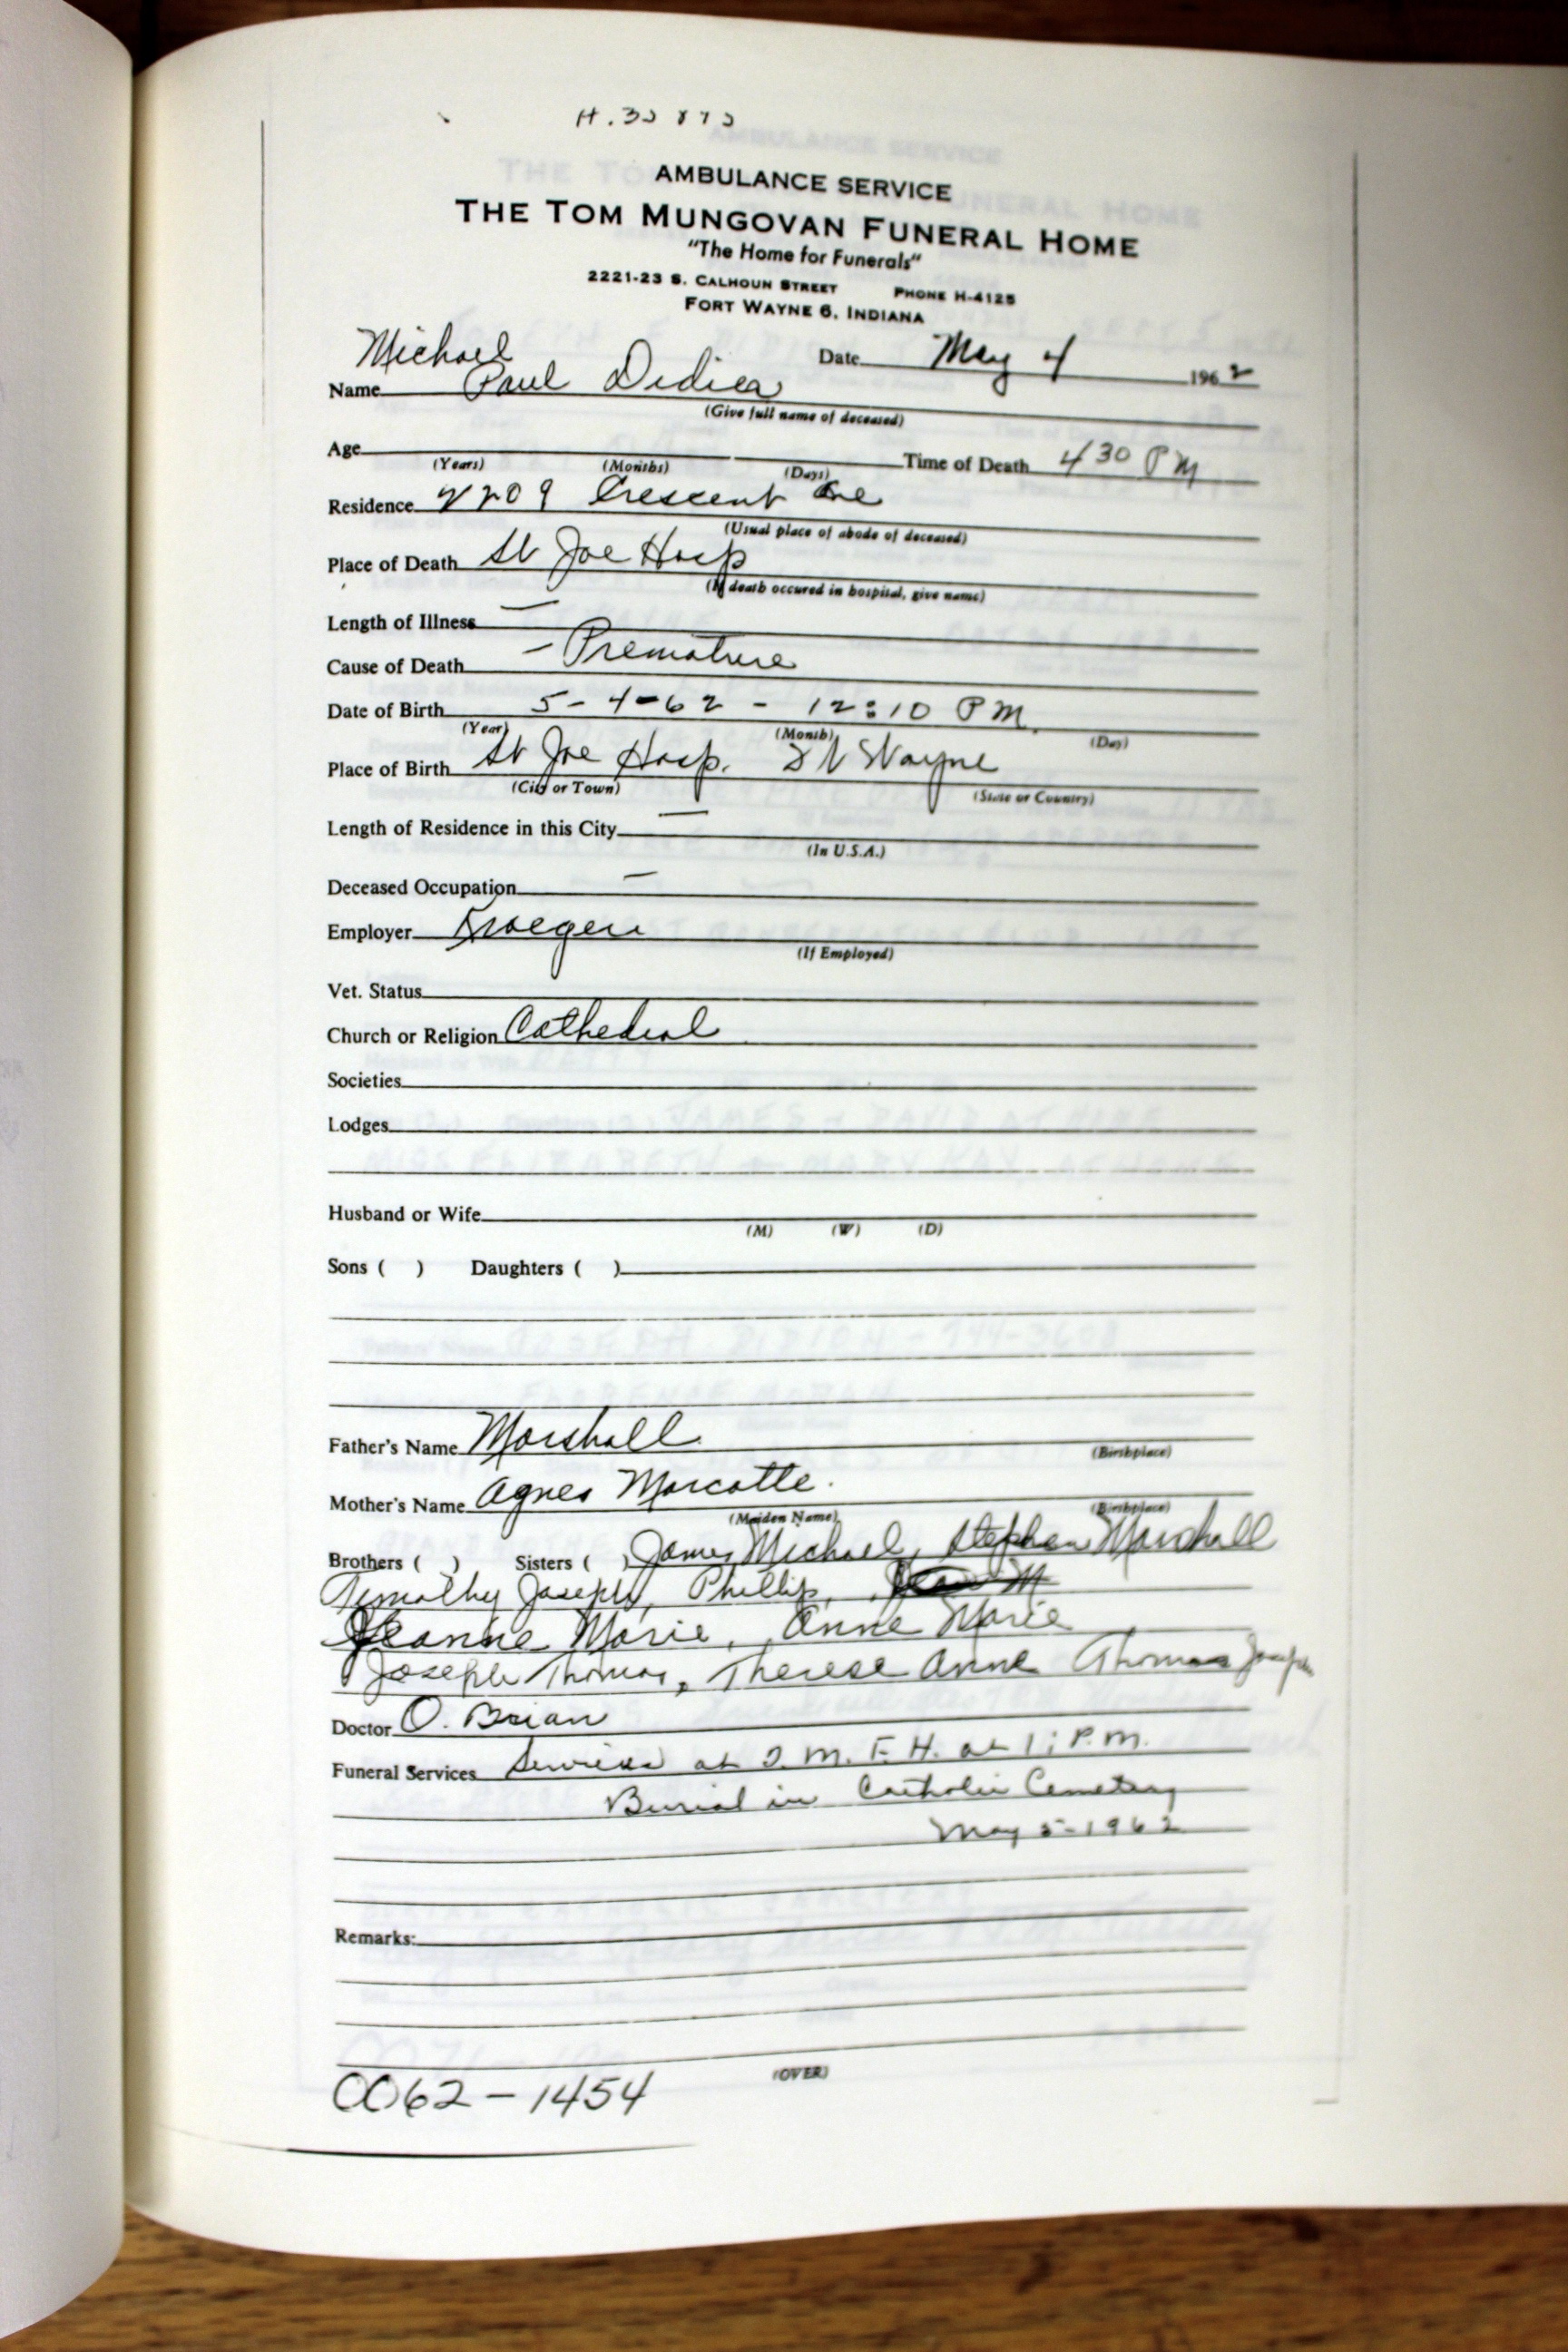 H.
AMBULANCE SERVICE
THE TOM MUNGOVAN FUNERAL HOME
"The Home for Funerals"
2221-23 S. CALHOUN STREET PHONE H-4125
FORT WAYNE 6, INDIANA
Michael
Date May 4 1962
Name Paul Didier
(Give full name of deceased)
Age (Years) (Months) (Days) Time of Death 4 30 PM
Residence 2209 Crescent Ave
(Usual place of abode of deceased)
Place of Death St Joe Hosp
(If death occured in hospital, give name)
Length of Illness —
Cause of Death - Premature
Date of Birth 5-4-62 - 12:10 PM.
(Year) (Month) (Day)
Place of Birth St Joe Hosp. Ft Wayne
(City or Town) (State or Country)
Length of Residence in this City —
(In U.S.A.)
Deceased Occupation —
Employer
(If Employed)
Vet. Status
Church or Religion Cathedral
Societies
Lodges
Husband or Wife
(M) (W) (D)
Sons ( ) Daughters ( )
Father's Name Marshall
(Birthplace)
Mother's Name Agnes Marcotte.
(Maiden Name) (Birthplace)
Brothers ( ) Sisters ( ) James Michael, Stephen Marshall
Timothy Joseph, Phillip,
Jeanne Marie, Anne Marie
Joseph Thomas, Therese Anne Thomas Joseph
Doctor O. Brian
Funeral Services Services at T. M. F. H. at 1: P.M.
Burial in Catholic Cemetery
May 5-1962
Remarks:
(OVER)
0062-1454